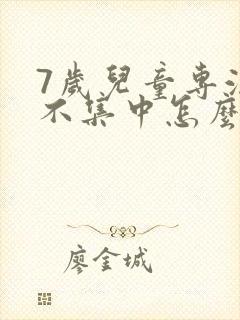 7歲兒童專注
不集中怎麼
廖金城